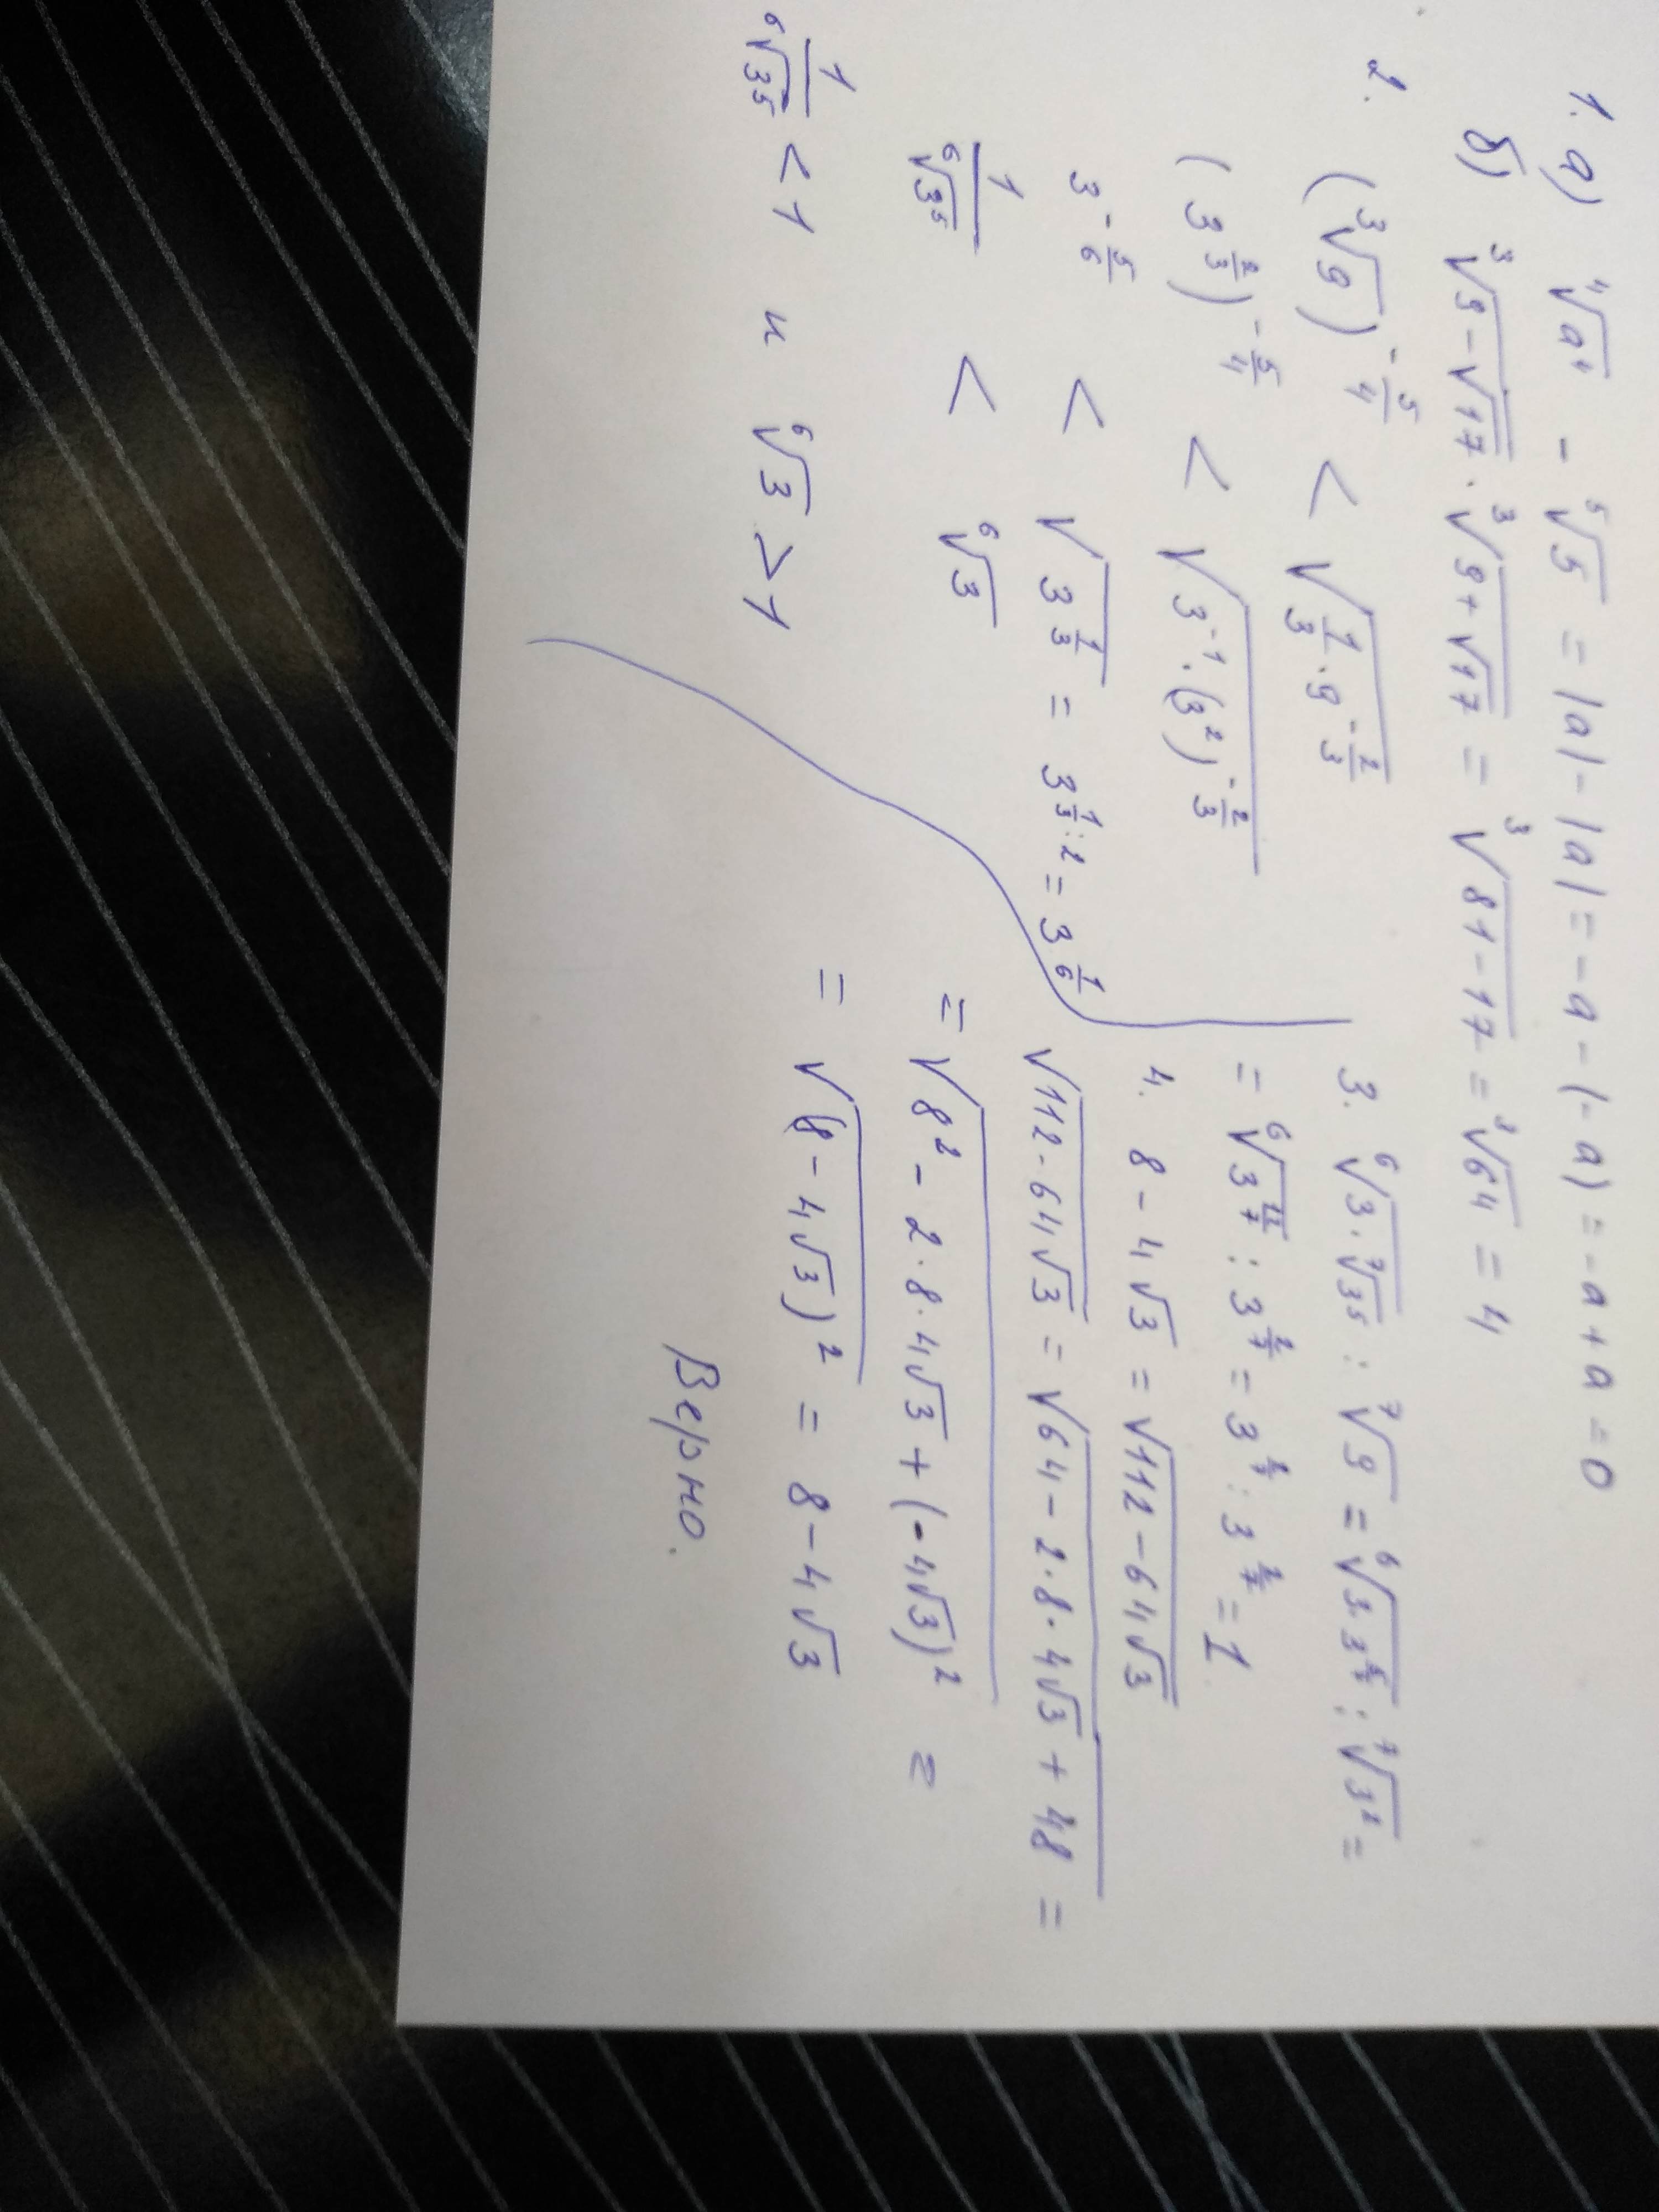 1. а) ⁴√a⁴ - ⁵√5 = |a| - |a| = -a - (-a) = -a + a = 0
б) ³√(9-√17) · ³√(9+√17) = ³√(81-17) = ³√64 = 4
2. (³√9)^(-5/4) < √(1/3 · 9^(-2/3))
(3^(2/3))^(-5/4) < √(3^(-1) · (3²)^(-2/3))
3^(-5/6) < √(3^(1/3)) = 3^(1/3 : 2) = 3^(1/6)
1/⁶√3⁵ < ⁶√3
1/⁶√3⁵ < 1 и ⁶√3 > 1
3. ⁶√(3·⁷√3⁵) : ⁷√9 = ⁶√(3·3^(5/7)) : ⁷√3² =
= ⁶√(3^(12/7)) : 3^(2/7) = 3^(2/7) : 3^(2/7) = 1
4. 8 - 4√3 = √(112 - 64√3)
√(112 - 64√3) = √(64 - 2·8·4√3 + 48) =
= √(8² - 2·8·4√3 + (-4√3)²) =
= √((8 - 4√3)²) = 8 - 4√3
Верно.